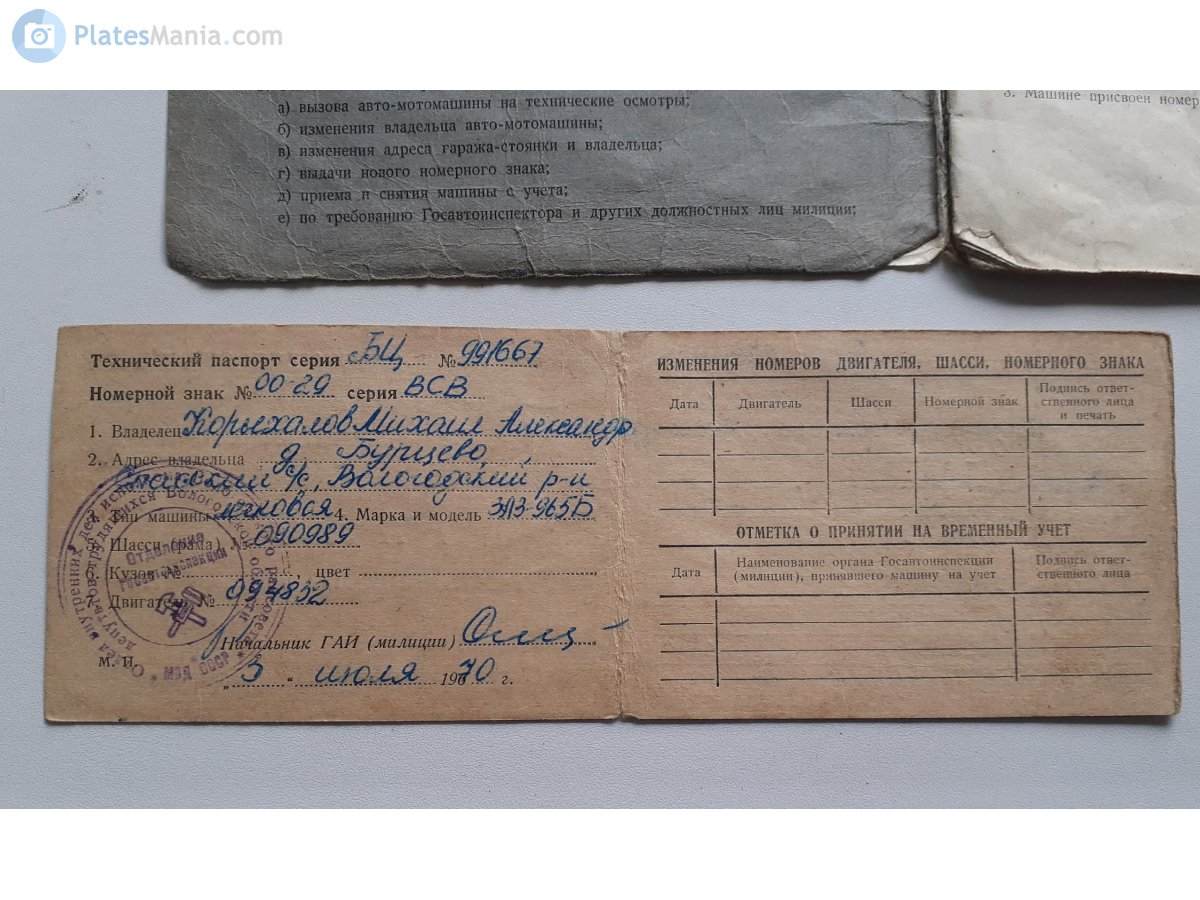 PlatesMania.com
а) вызова авто-мотомашины на технические осмотры;
б) изменения владельца авто-мотомашины;
в) изменения адреса гаража-стоянки и владельца;
г) выдачи нового номерного знака;
д) приема и снятия машины с учета;
е) по требованию Госавтоинспектора и других должностных лиц милиции;
3. Машине присвоен номер
Технический паспорт серия БЦ № 991667
Номерной знак № 00-29 серия ВСВ
1. Владелец Корыхалов Михаил Александр
2. Адрес владельца д. Бурцево,
Спасский с/с, Вологодский р-н
3. Тип машины легковая 4. Марка и модель ЗАЗ-965Б
5. Шасси (рама) № 090989
6. Кузов № цвет
7. Двигатель № 094832
Начальник ГАИ (милиции)
М. П.
„ 3 “ июля 1970 г.
Отделение
Госавтоинспекции
* МВД СССР *
ИЗМЕНЕНИЯ НОМЕРОВ ДВИГАТЕЛЯ, ШАССИ, НОМЕРНОГО ЗНАКА
Дата Двигатель Шасси Номерной знак Подпись ответ-
ственного лица
и печать
ОТМЕТКА О ПРИНЯТИИ НА ВРЕМЕННЫЙ УЧЕТ
Дата Наименование органа Госавтоинспекции
(милиции), принявшего машину на учет
Подпись ответ-
ственного лица